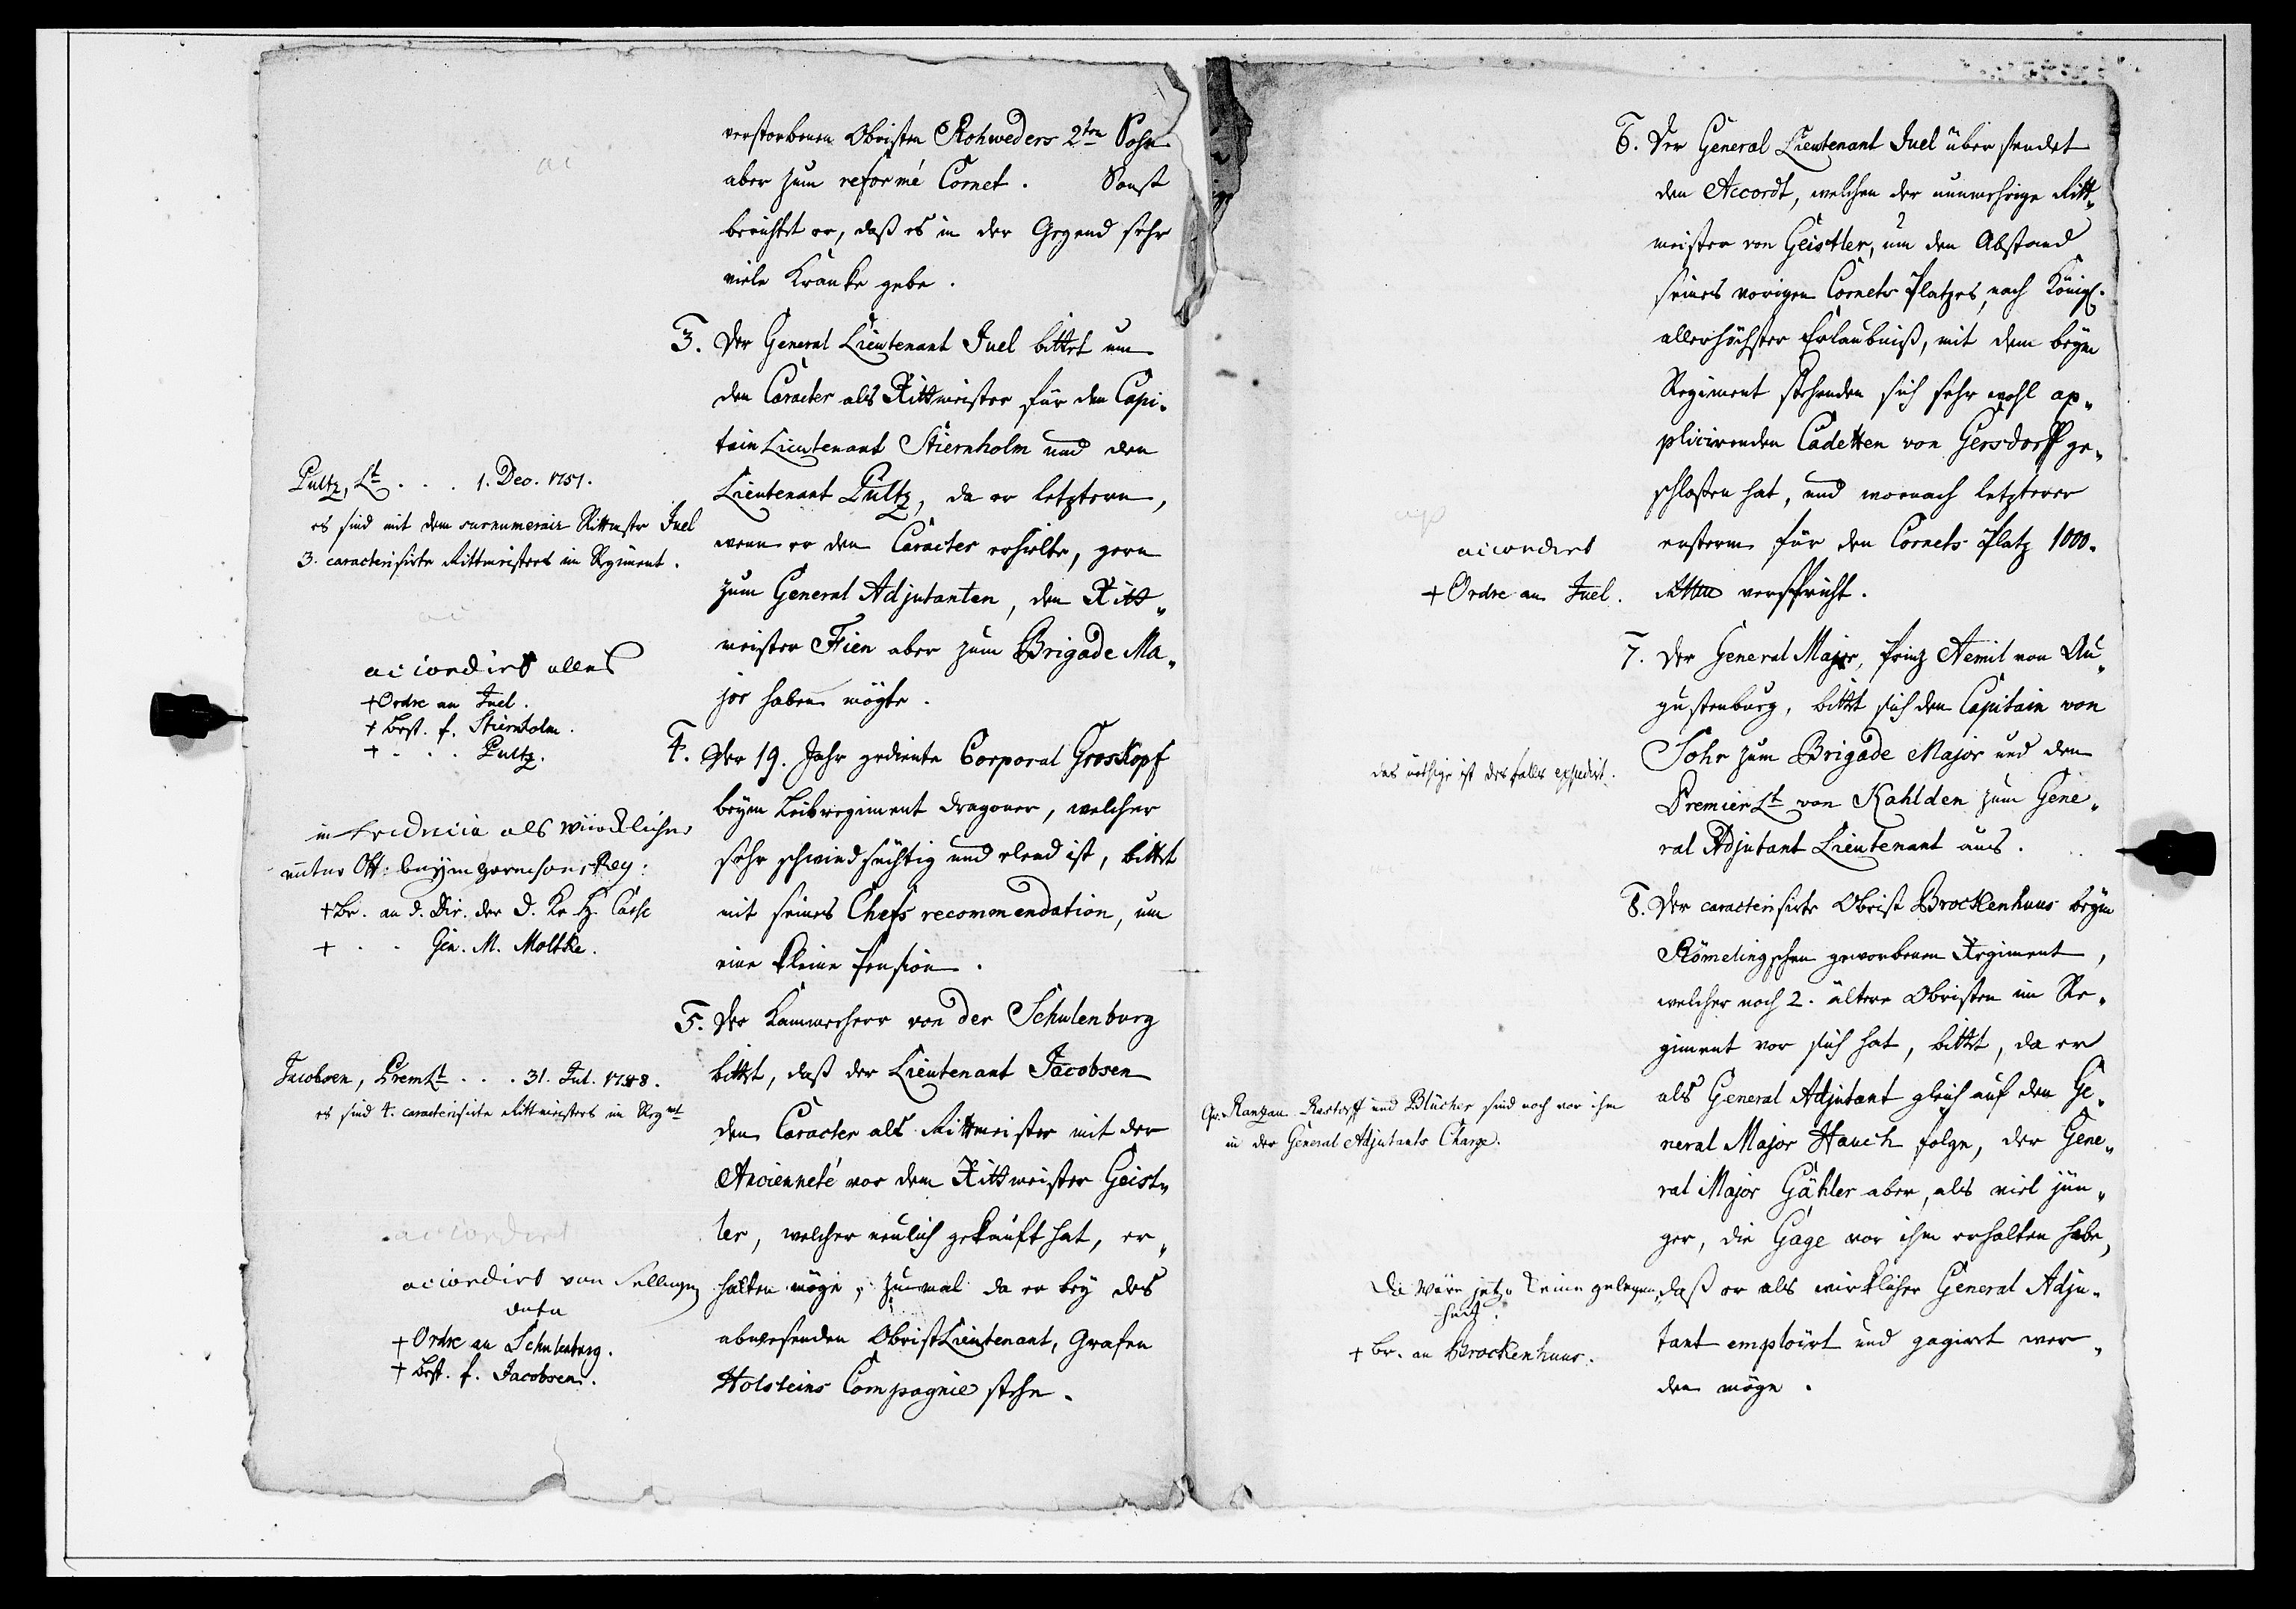 verstorbenen Obristen Rohweders 2ten Sohn
aber zum reformé Cornet. Sonst
berichtet er, daß es in der Gegend sehr
viele Kranke gebe.
3. Der General Lieutenant Juel bittet um
den Caracter als Rittmeister für den Capi-
tain Lieutenant Stiernholm und den
Lieutenant Pultz, da er letztern,
wenn er den Caracter erhielte, gern
zum General Adjutanten, den Ritt-
meister Fien aber zum Brigade Ma-
jor haben mögte.
Pultz, Lt . . . 1. Dec. 1751.
es sind mit dem surnumerair Rittmstr Juel
3. caracterisirte Rittmeisters im Regiment.
accordirt alles
+ Ordre an Juel.
+ Best. f. Stiernholm.
+ - . . Pultz.
4. Der 19. Jahr gediente Corporal Groskopf
beym Leibregiment Dragoner, welcher
sehr schwindsüchtig und elend ist, bittet
mit seines Chefs recommendation, um
eine kleine Pension.
in als würcklicher
unter Off: beym Reg:
+ Br. an d. Dir. der D. Kr. H. Casse
+ . . Gen. M. Moltke.
5. Der Kammerherr von der Schulenburg
bittet, daß der Lieutenant Jacobsen
den Caracter als Rittmeister mit der
Ancienneté vor dem Rittmeister Geist-
ler, welcher neulich gekauft hat, er-
halten möge, zumal da er bey des
abwesenden ObristLieutenant, Grafen
Holsteins Compagnie stehe.
Jacobsen, PremLt . . . 31. Jul. 1748.
es sind 4. caracterisirte Rittmeisters im Regmt
accordirt
accordirt von selbigen
dato
+ Ordre an Schulenburg.
+ Best. f. Jacobsen.
6. Der General Lieutenant Juel übersendet
den Accordt, welchen der nunmehrige Ritt-
meister von Geistler, um den Abstand
seines vorigen Cornets Platzes, nach Königl.
allerhöchster Erlaubniß, mit dem beym
Regiment stehenden sich sehr wohl ap-
plicirenden Cadetten von Gersdorff ge-
schloßen hat, und wornach letzterer
ersterm für den Cornets Platz 1000.
verspricht.
accordirt
+ Ordre an Juel.
7. Der General Major, Prinz Aemil von Au-
gustenburg, bittet sich den Capitain von
Sohr zum Brigade Major und den
Premier Lt von Kahlden zum Gene-
ral Adjutant Lieutenant aus.
das nöthige ist desfalls expedirt.
8. Der caracterisirte Obrist Brockenhuus beym
Römelingschen geworbenen Regiment,
welcher noch 2. ältere Obristen im Re-
giment vor sich hat, bittet, da er
als General Adjutant gleich auf den Ge-
neral Major Hauch folge, der Gene-
ral Major Gähler aber, als viel jün-
ger, die Gage vor ihm erhalten habe,
daß er als wirklicher General Adju-
tant emploirt und gagirt wer-
den möge.
Gr. Ranzau. Rastorff und Blücher sind noch vor ihm
in der General Adjutants Charge.
Da wäre jetzo keine gelegen-
heit.
+ Br. an Brockenhuus.